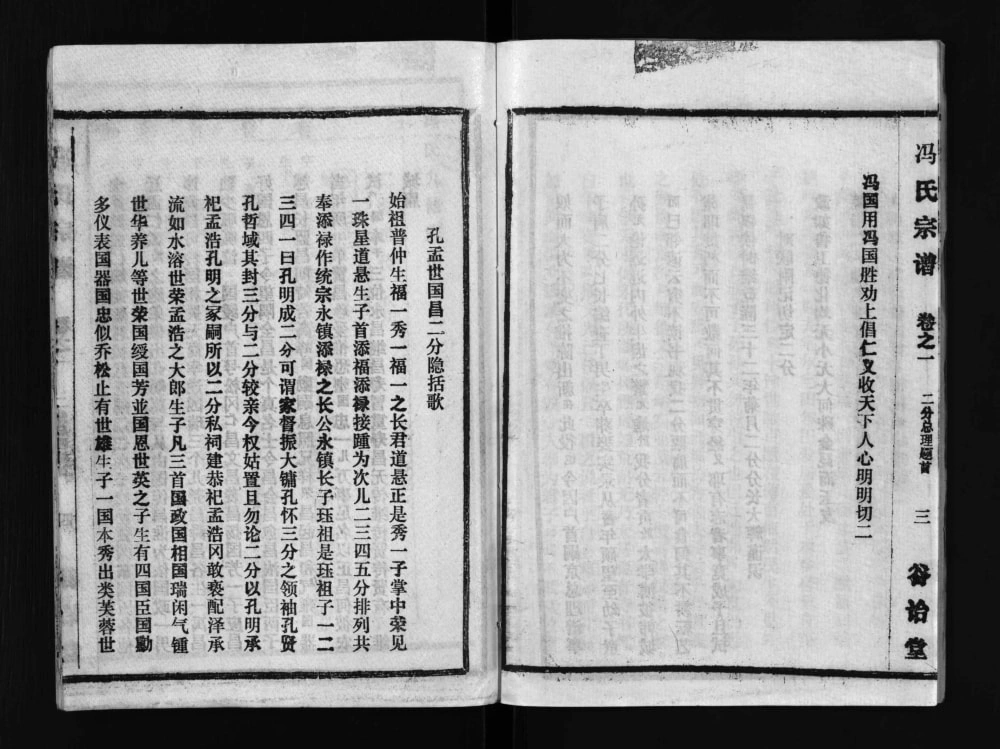 冯氏宗谱 卷之一 二分总理题首 三 谷诒堂
冯国用冯国胜劝上倡仁义收天下人心明明切二
孔孟世国昌二分隐括歌
始祖普仲生福一秀一福一之长君道悬正是秀一子掌中荣见
一珠星道悬生子首添福添禄接踵为次儿二三四五分排列共
奉添禄作统宗永镇添禄之长公永镇长子珏祖是珏祖子一二
三四一曰孔明成二分可谓家督振大镛孔怀三分之领袖孔贤
孔哲域其封三分与二分较亲今权姑置且勿论二分以孔明承
祀孟浩孔明之冢嗣所以二分私祠建恭祀孟浩冈敢亵配泽承
流如水溶世荣孟浩之大郎生子凡三首国政国相国瑞闲气锺
世华养儿等世荣国绶国芳並国恩世英之子生有四国臣国勤
多仪表国器国忠似乔松止有世雄生子一国本秀出类芙蓉世